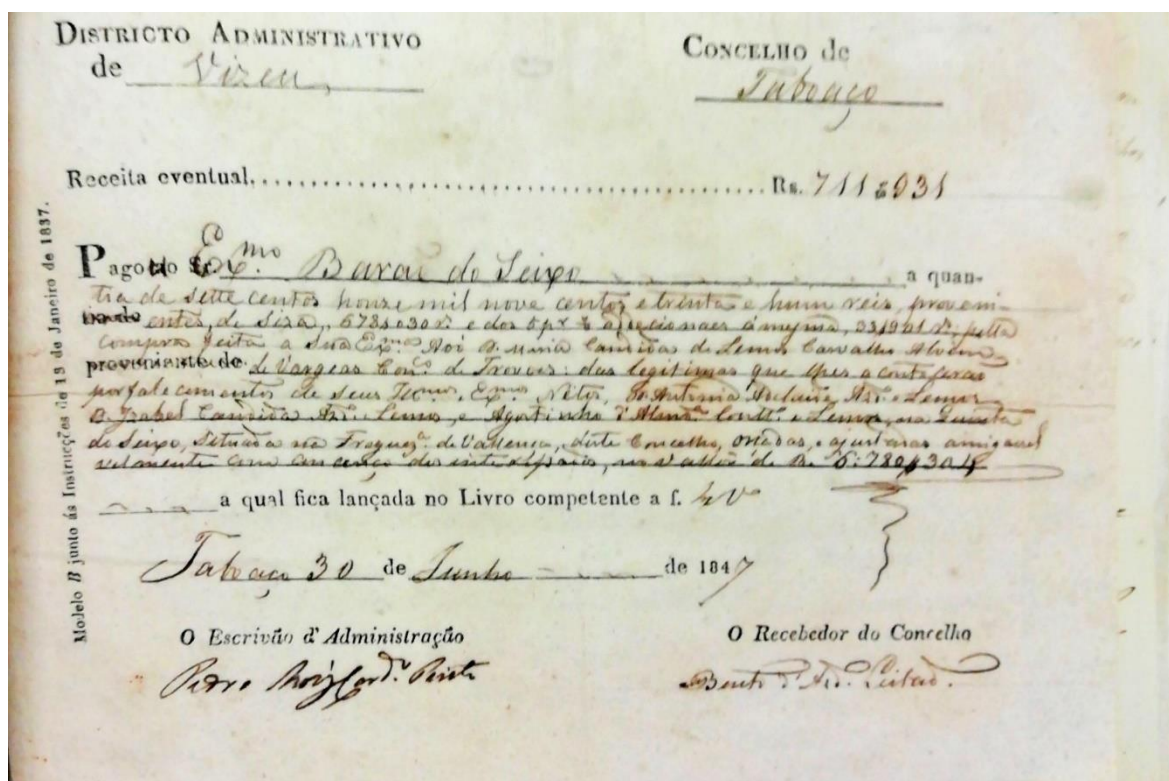 DISTRICTO ADMINISTRATIVO
de Vizeu
CONCELHO de
Taboaço
Receita eventual. Rs. 711$931
Pagou o Exmo. Barão do Seixo a quan-
tia de sette centos honze mil nove centos e trinta e hum reis, proveni
entes, de Siza, 678$030 rs. e dos 5 pr % addicionaes á mesma, 33$901 rs. pella
compra feita a Sua Exma. D. Maria Candida de Lemos Carvalho
proveniente de de Vargeas Conc. de Trovões: das legitimas que lhes acontecerão
por falecimento de seus Exmos. Netos, D. Antonia Adelaide e Lemos
D. Izabel Candida e Lemos, e Agostinho e Lemos, na Quinta
do Seixo, Situada na Fregueza. de Valença, deste Concelho, amigavel
velmente com de Rs. 6:780$304
a qual fica lançada no Livro competente a f. 4 Vo
Taboaço 30 de Junho de 1847
O Escrivão d'Administração
O Recebedor do Concelho
Pedro Roiz Card. Pinto
Bento Leitão.
Modelo B junto ás Instrucções de 13 de Janeiro de 1837.